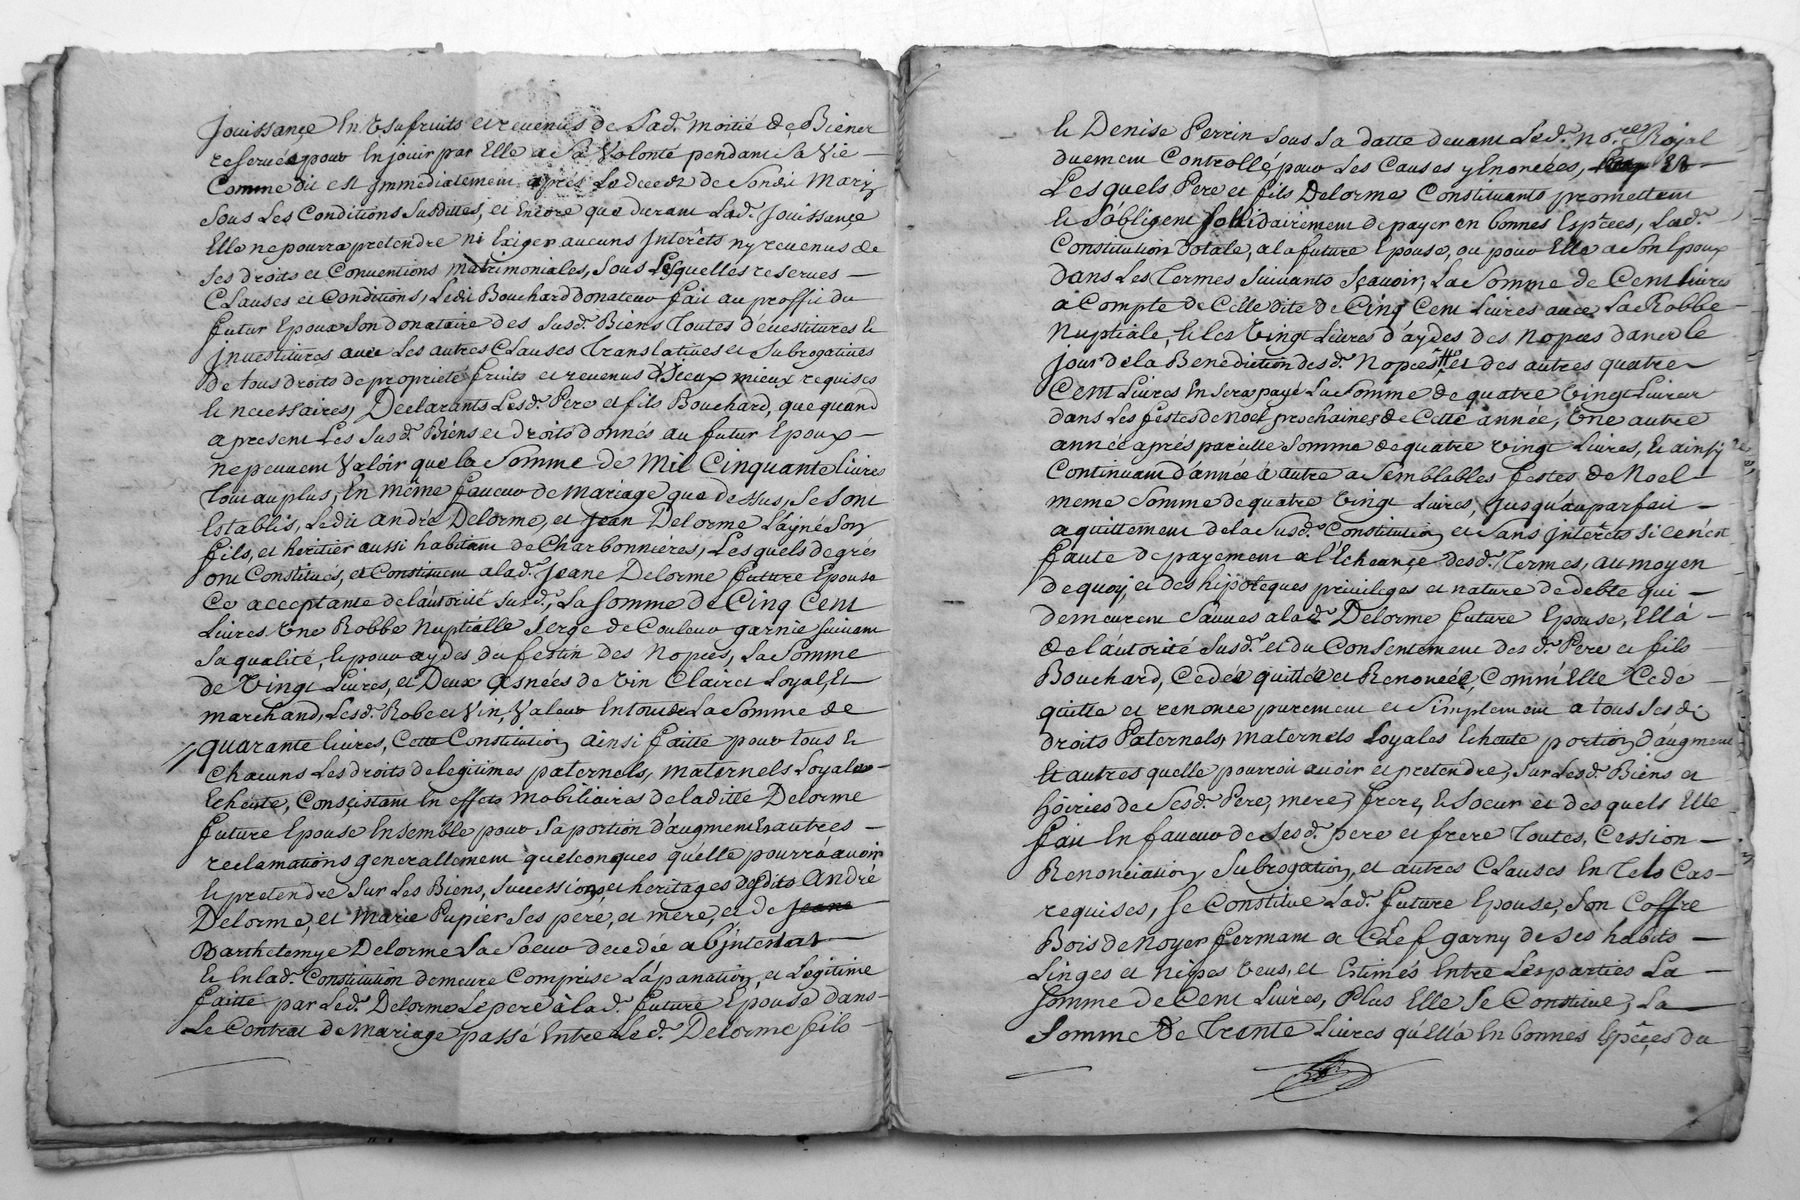 Jouissance En Usufruits et revenus de Lad.e moitié de Biener
reservée pour En jouir par Elle a Sa Volonté pendant Sa Vie
Comme dit est Jmmediatement aprés Le deced de Sondit Mary
Sous Les Conditions Susdittes, et Encore que durant Lad.e Jouissançe
Elle ne pourra pretendre ni Exiger aucuns Jnterêts ny revenus de
Ses droits et Conventions matrimoniales, Sous Lesquelles reserves
Clauses et Conditions, Ledit Bouchard donateur fait au proffit du
futur Epoux Son donataire des Susd.s Biens Toutes d'evestitures Et
Jnvestitures avec Les autres Clauses Translatives et Subrogatives
De tous droits de proprieté fruits et revenus mieux requises
Et necessaires, Declarants Lesd.s Pere et fils Bouchard, que quand
a present Les Susd.s Biens et droits donnés au futur Epoux
ne peuvent Valoir que la Somme de Mil Cinquante Livres
Tout au plus, En même faveur de mariage que dessus, Se Sont
Establis, Ledit andré Delorme, et Jean Delorme L'ayné Son
fils, et heritier aussi habitant de Charbonniéres, Lesquels de grés
ont Constitués, et Constituent a lad.e Jeane Delorme future Epouse
Ce acceptante de l'autorité Susd.e, La Somme de Cinq Cent
Livres Une Robbe Nuptialle Serge de Couleur garnie Suivant
Sa qualité, Et pour aydes du festin des Nopces, La Somme
de Vingt Livres, et Deux asnées de Vin Clairet Loyal, Et
marchand, Lesd. Robe et Vin, Valeur En tout de La Somme de
quarante Livres, Cette Constitution ainsi faitte pour tous Et
Chacuns Les droits de legitimes paternels, maternels Loyale
Echeute, Consçistant En effets mobiliaires de laditte Delorme
future Epouse Ensemble pour Sa portion d'augment Et autres
reclamations generallement quelconques qu'elle pourra avoir
Et pretendre Sur Les Biens, Successions, et heritages desdits André
Delorme, et Marie Pupier Ses pere, et mere, et de Jeane
Barthelemye Delorme Sa Soeur decedée abjntestat
Et En lad.e Constitution demeure Comprise L'apanation, et Legitime
faitte par Led.t Delorme Le pere à la d.e future Epouse dans
Le Contrat de Mariage passé Entre Led.t Delorme fils
Et Denise Perrin Sous Sa datte devant Led.t No.re Royal
duement Controllé, pour Les Causes y Enoncées,
Lesquels Pere et fils Delorme Constituants promettent
Et S'obligent Sollidairement de payer en bonnes Espèces, Lad.e
Constitution Dotale, a la future Epouse, ou pour Elle a Son Epoux
dans Les Termes Suivants Sçavoir, La Somme de Cent Livres
a Compte de Celle dite de Cinq Cent Livres avec La Robbe
Nuptiale, Et les Vingt Livres d'aydes des Nopces dans le
Jour de la Benediction desd.s Nopces et des autres quatre
Cent Livres En Sera payé La Somme de quatre Vingt Livres
dans Les festes de Noel prochaines de Cette année, Une autre
année aprés pareille Somme de quatre Vingt Livres, Et ainsy
Continuant d'année à autre a Semblables festes de Noel
meme Somme de quatre Vingt Livres, Jusqu'au parfait
aquittement de la Susd.e Constitution et Sans jnterêts Si ce n'est
faute de payement a l'Echeançe desd.s Termes, au moyen
de quoy et des hipoteques privileges et nature de debte qui
demeurent Sauves a la d.e Delorme future Epouse, Ell'a
de l'autorité Susd.e et du Consentement des d.s Pere et fils
Bouchard, Cedée quittée et Renoncée, Comm'Elle Cede
quitte et renonce purement et Simplement a tous Sesd.
droits Paternels, maternels Loyales Echeute portion d'augment
Et autres quelle pourroit avoir et pretendre, Sur Lesd.s Biens et
hoiries de Sesd.s Pere, mere, frere, Et Soeur et desquels Elle
fait En faveur de Sesd.s pere et frere Toutes, Cession
Renonciation, Subrogation, et autres Clauses En Tels Cas
requises, Se Constitue Lad.e future Epouse, Son Coffre
Bois de Noyer fermant a Clef garny de Ses habits
Linges et Nipes Veus, et Estimés Entre Les parties La
Somme de Cent Livres, Plus Elle Se Constitue, La
Somme de Trente Livres qu'Ell'a En bonnes Espèces du